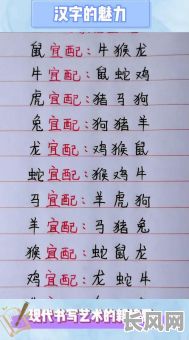 汉字的魅力
鼠宜配：牛猴龙
牛宜配：鼠蛇鸡
虎宜配：猪马狗
兔宜配：狗猪羊
龙宜配：鸡猴鼠
蛇宜配：猴鸡牛
马宜配：羊虎狗
羊宜配：马猪兔
猴宜配：蛇鼠龙
鸡宜配：龙蛇牛
现代书写艺术的
长风网
cfw.cn